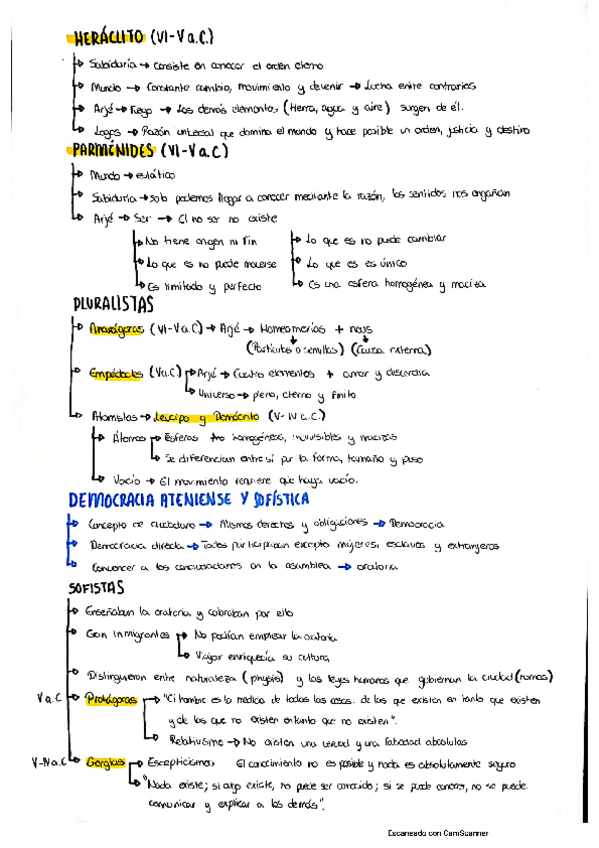 HERÁCLITO (VI-V a.C.)
Sabiduría → Consiste en conocer el orden eterno
Mundo → Constante cambio, movimiento y devenir → Lucha entre contrarios
Arjé → Fuego → Los demás elementos (tierra, agua y aire) surgen de él.
Logos → Razón universal que domina el mundo y hace posible un orden, justicia y destino
PARMÉNIDES (VI-V a.C)
Mundo → estático
Sabiduría → solo podemos llegar a conocer mediante la razón, los sentidos nos engañan
Arjé → Ser → El no ser no existe
No tiene origen ni fin
Lo que es no puede cambiar
Lo que es no puede moverse
Lo que es es único
Es limitado y perfecto
Es una esfera homogénea y maciza
PLURALISTAS
Anaxágoras (VI-V a.C) → Arjé → Homeomerias + nous
(Partículas o semillas) (Causa externa)
Empédocles (V a.C.) → Arjé → Cuatro elementos + amor y discordia
Universo → pleno, eterno y finito
Atomistas → Leucipo y Demócrito (V-IV a.C.)
Átomos → Esferas homogéneas, invisibles y macizas
Se diferencian entre sí por la forma, tamaño y peso
Vacío → El movimiento requiere que haya vacío.
DEMOCRACIA ATENIENSE Y SOFÍSTICA
Concepto de ciudadano → Mismos derechos y obligaciones → Democracia
Democracia directa → Todos participaban excepto mujeres, esclavos y extranjeros
Convencer a los conciudadanos en la asamblea → oratoria
SOFISTAS
Enseñaban la oratoria y cobraban por ello
Eran inmigrantes → No podían emplear la oratoria
Viajar enriquecía su cultura
Distinguieron entre naturaleza (physis) y las leyes humanas que gobiernan la ciudad (nomos)
V a.C Protágoras → "El hombre es la medida de todas las cosas. de las que existen en tanto que existen
y de las que no existen en tanto que no existen".
Relativismo → No existen una verdad y una falsedad absolutas
V-IV a.C Gorgias → Escepticismo, El conocimiento no es posible y nada es absolutamente seguro
"Nada existe; si algo existe, no puede ser conocido; si se puede conocer, no se puede
comunicar y explicar a los demás".
Escaneado con CamScanner